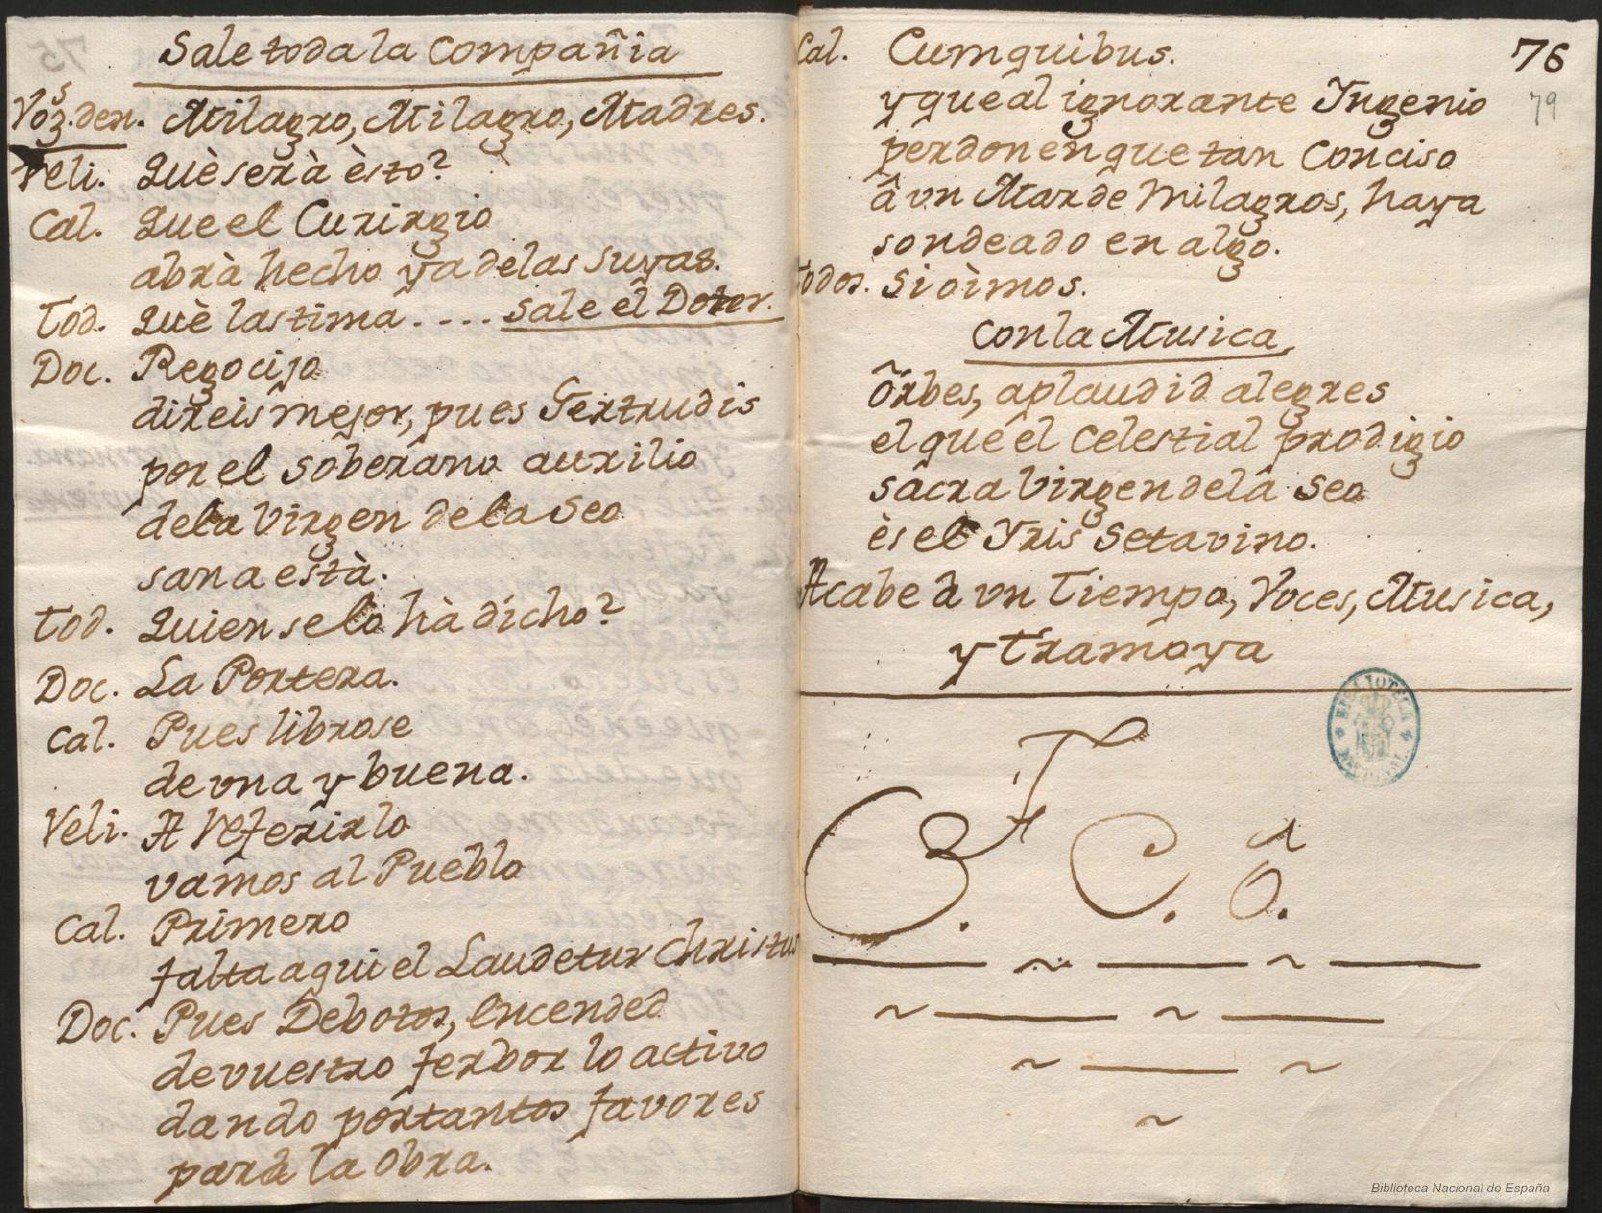 Sale toda la Compañia
Vozs. den. Milagro, Milagro, Madres.
Veli. Què serà èsto?
Cal. Que el Curirgio
abrà hecho ya de las suyas.
Tod. Què lastima .... Sale el Dotor.
Doc. Regocijo
direis mejor, pues Gertrudis
por el soberano auxilio
de la Virgen de la Seo
sana està.
Tod. Quien se lo hà dicho?
Doc. La Portera.
Cal. Pues librose
de una y buena.
Veli. A referirlo
vamos al Pueblo
Cal. Primero
falta aqui el Laudetur Christus
Doc. Pues Debotos, encended
de vuestro ferbor lo activo
dando por tantos favores
para la obra.
Cal. Cumquibus.
y que al ignorante Yngenio
perdonen que tan Conciso
â vn Mar de Milagros, haya
sondeado en algo.
Todos. Si oìmos.
Con la Musica,
Orbes, aplaudid alegres
el que el Celestial prodigio
sacra Virgen de la Seo
ès el Yris Setavino.
Acabe à vn Tiempo, Voces, Musica,
y Tramoya
76
79
BIBLIOTECA NACIONAL
Biblioteca Nacional de España